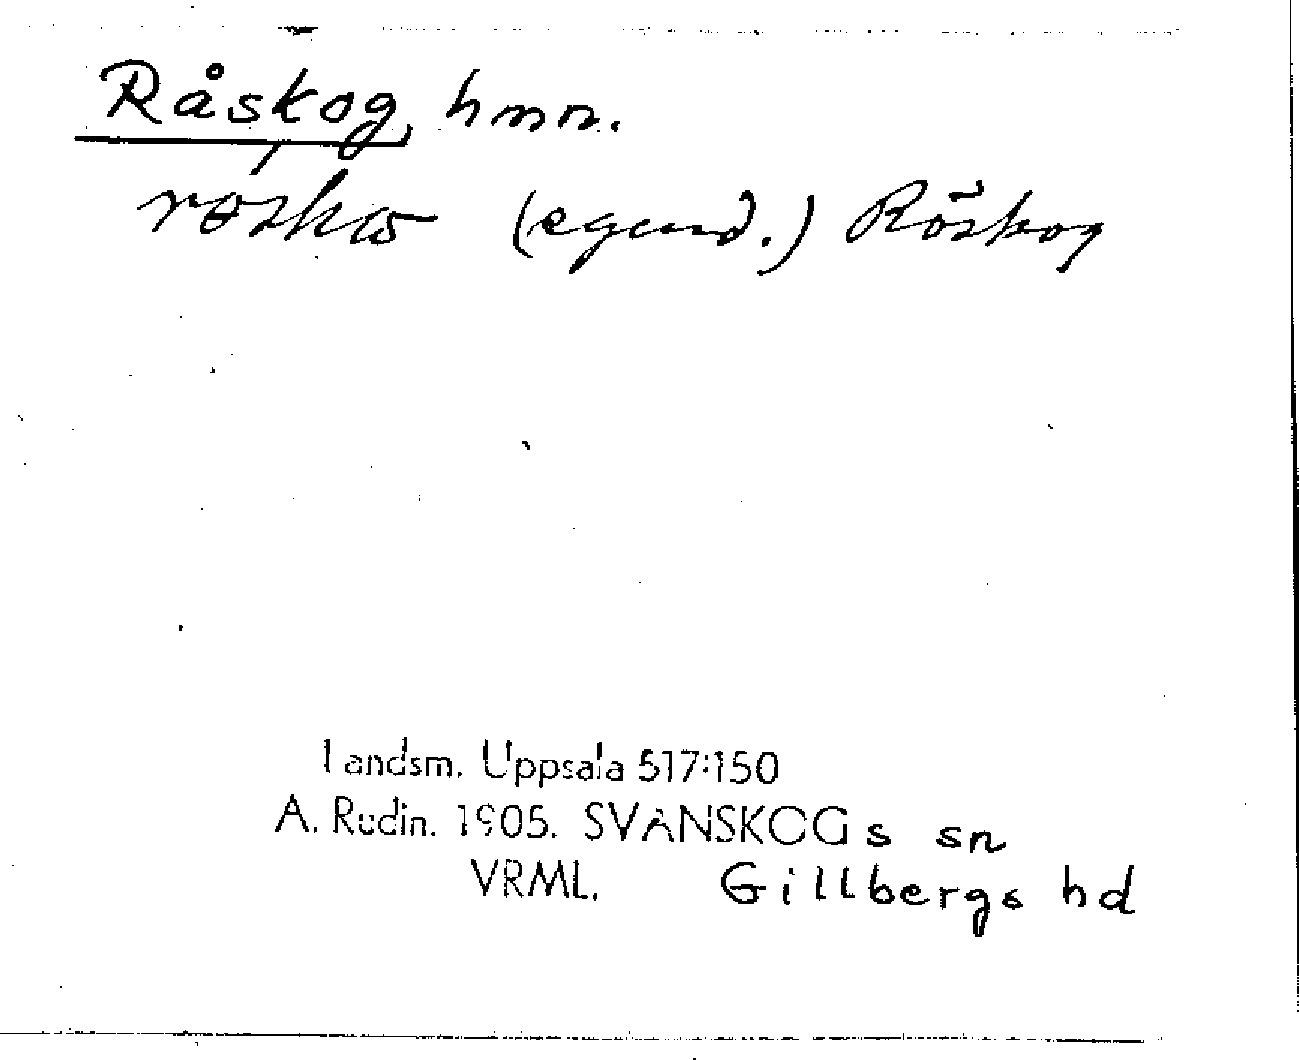 Råskog, hmn.
(egend.) Röskog
Landsm. Uppsala 517:150
A. Rudin. 1905. SVANSKOGs sn
VRML. Gillbergs hd